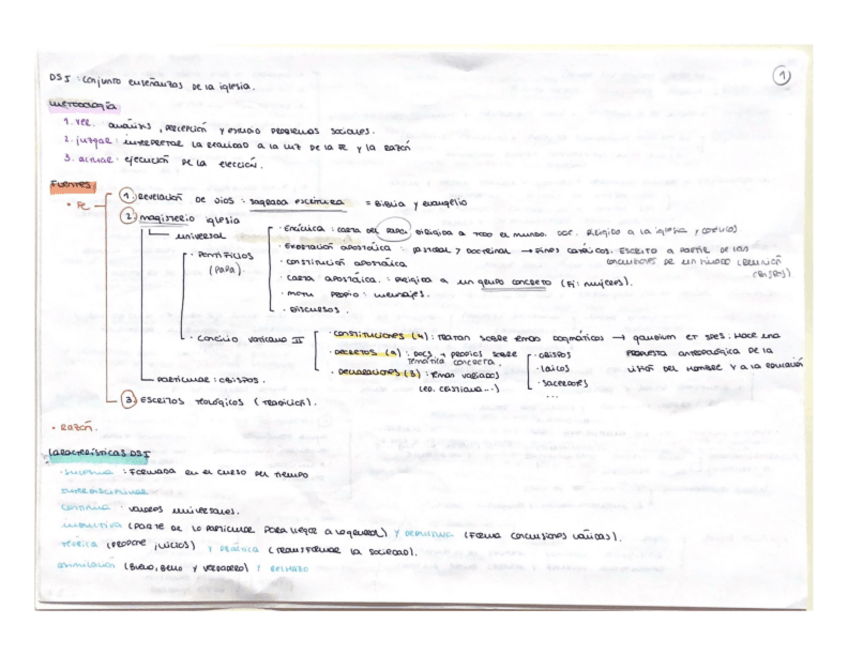 1
DSI: Conjunto enseñanzas de la iglesia.
metodología
1. ver. análisis, percepción y estudio problemas sociales.
2. juzgar: interpretar la realidad a la luz de la fe y la razón
3. actuar: ejecución de la elección.
Fuentes
• Fe
1. Revelación de Dios: sagrada escritura = Biblia y evangelio
2. magisterio iglesia
universal
· Pontificios (papa).
· Encíclica: carta del papa dirigida a todo el mundo. dirigido a la iglesia y
· Exhortación apostólica: pastoral y doctrinal → fines Escrito a partir de las
conclusiones de un sínodo (reunión
obispos)
· constitución apostólica
· Carta apostólica: dirigida a un grupo concreto (Ej: mujeres).
· motu propio: mensajes.
· Discursos.
· Concilio Vaticano II
· constituciones (4): tratan sobre temas dogmáticos → gaudium et spes: Hace una
propuesta antropológica de la
visión del hombre y a la educación
· Decretos (9): docs. + propios sobre
temática concreta.
· obispos
· laicos
· sacerdotes
...
· Declaraciones (3): temas variados
(ed. cristiana...)
particular: obispos.
3. Escritos teológicos (tradición).
• Razón.
Características DSI
· sucesiva: Formada en el curso del tiempo
interdisciplinar
continua: valores universales.
inductiva (parte de lo particular para llegar a lo general) y deductiva (Forma conclusiones válidas).
teórica (propone juicios) y práctica (transformar la sociedad).
asimilación (bueno, bello y verdadero) y rechazo